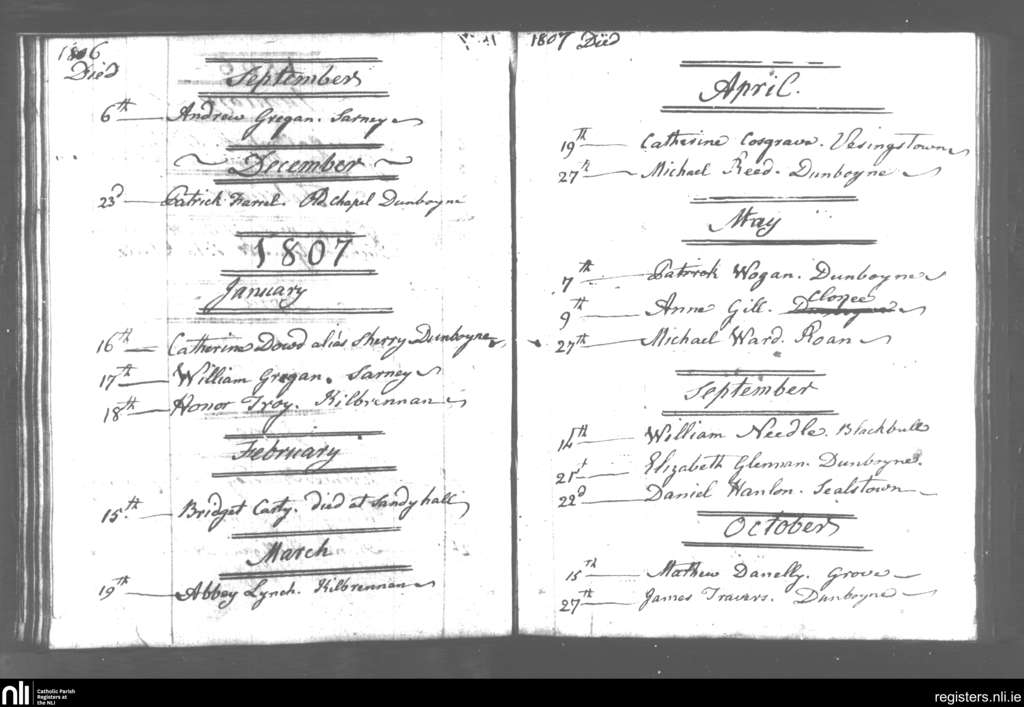 1806
Died
September
6th Andrew Gregan. Sarney
December
23d Patrick Farrel. Chapel Dunboyne
1807
January
16th Catherine Dowd alias Sherry Dunboyne
17th William Gregan. Sarney
18th Honor Troy. Kilbrennan
February
15th Bridget Casty. died at Sandyhall
March
19th Abbey Lynch. Kilbrennan
1807 Died
April.
19th Catherine Cosgrave. Vesingstown
27th Michael Reed. Dunboyne
May
7th Patrick Wogan. Dunboyne
9th Anne Gill. Clonee
27th Michael Ward. Roan
September
14th William Needle. Blackbull
21st Elizabeth Glennan. Dunboyne.
22d Daniel Hanlon. Sealstown
October
15th Mathew Danelly. Grove
27th James Travers. Dunboyne
nli Catholic Parish
Registers at
the NLI
registers.nli.ie